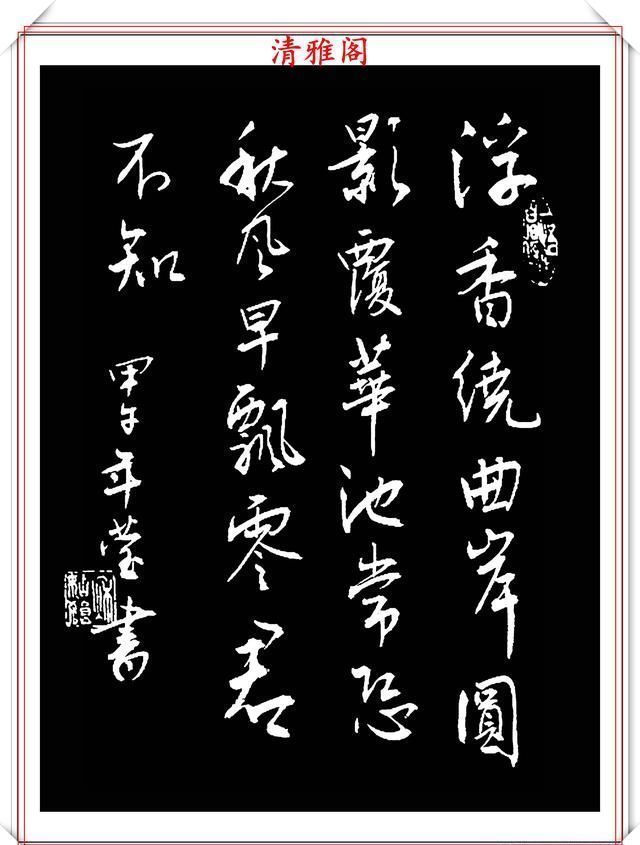 清雅阁
浮香繞曲岸圓
影覆華池常恐
秋风早飄零君
不知
甲午年莹書